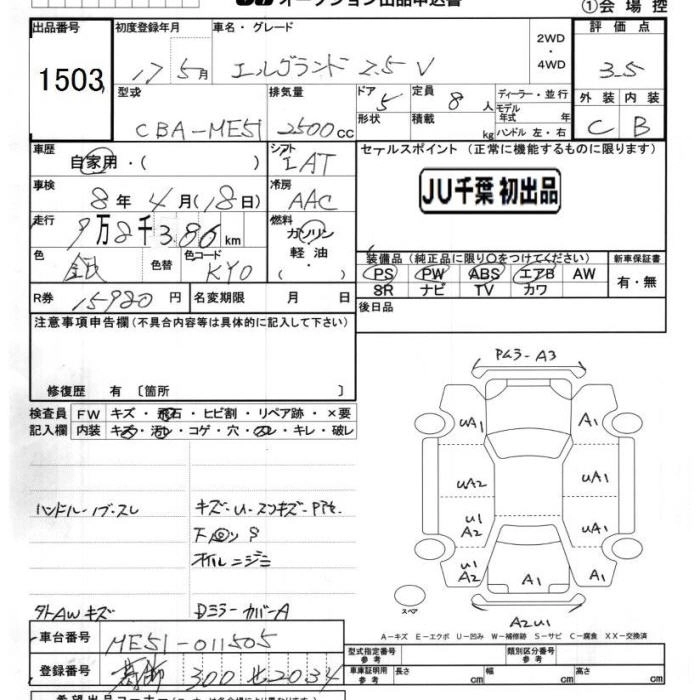 オークション出品申込書
①会場控
出品番号 初度登録年月 車名・グレード 評価点
1503 17 5月 エルグランド 2.5 V 2WD・4WD 3.5
型式 排気量 ドア 5 定員 8 人 ディーラー・並行 外装 内装
CBA-ME51 2500cc 形状 積載 kg モデル年式 年 ハンドル 左・右 C B
車歴 自家用・( ) シフト IAT セールスポイント (正常に機能するものに限ります)
車検 8年 4月(18日) 冷房 AAC JU千葉 初出品
走行 9万8千386km 燃料 ガソリン・軽油・( )
色 銀 色替 色コード KY0 装備品 (純正品に限り○をつけてください) 新車保証書
PS PW ABS エアB AW 有・無
SR ナビ TV カワ
R券 15920円 名変期限 月 日 後日品
注意事項申告欄 (不具合内容等は具体的に記入して下さい)
修復歴 有 〔箇所 〕
検査員 FW キズ・飛石・ヒビ割・リペア跡・×要
記入欄 内装 キズ・汚レ・コゲ・穴・スレ・キレ・破レ
ハンドル-ノブ-スレ キズ-U-スリキズ-
オイルニジミ
外AWキズ DミラーカバーA
Pムラ-A3
UA1 A1
UA2 UA1
U1 A2 UA1
U1 A2 A1 A1
スペア A2U1
A-キズ E-エクボ U-凹み W-補修跡 S-サビ C-腐食 XX-交換済
車台番号 ME51-011505 型式指定番号 参考 類別区分番号 参考
登録番号 300 2034 車庫証明用 参考 長さ cm 幅 cm 高さ cm
希望出品コーナー